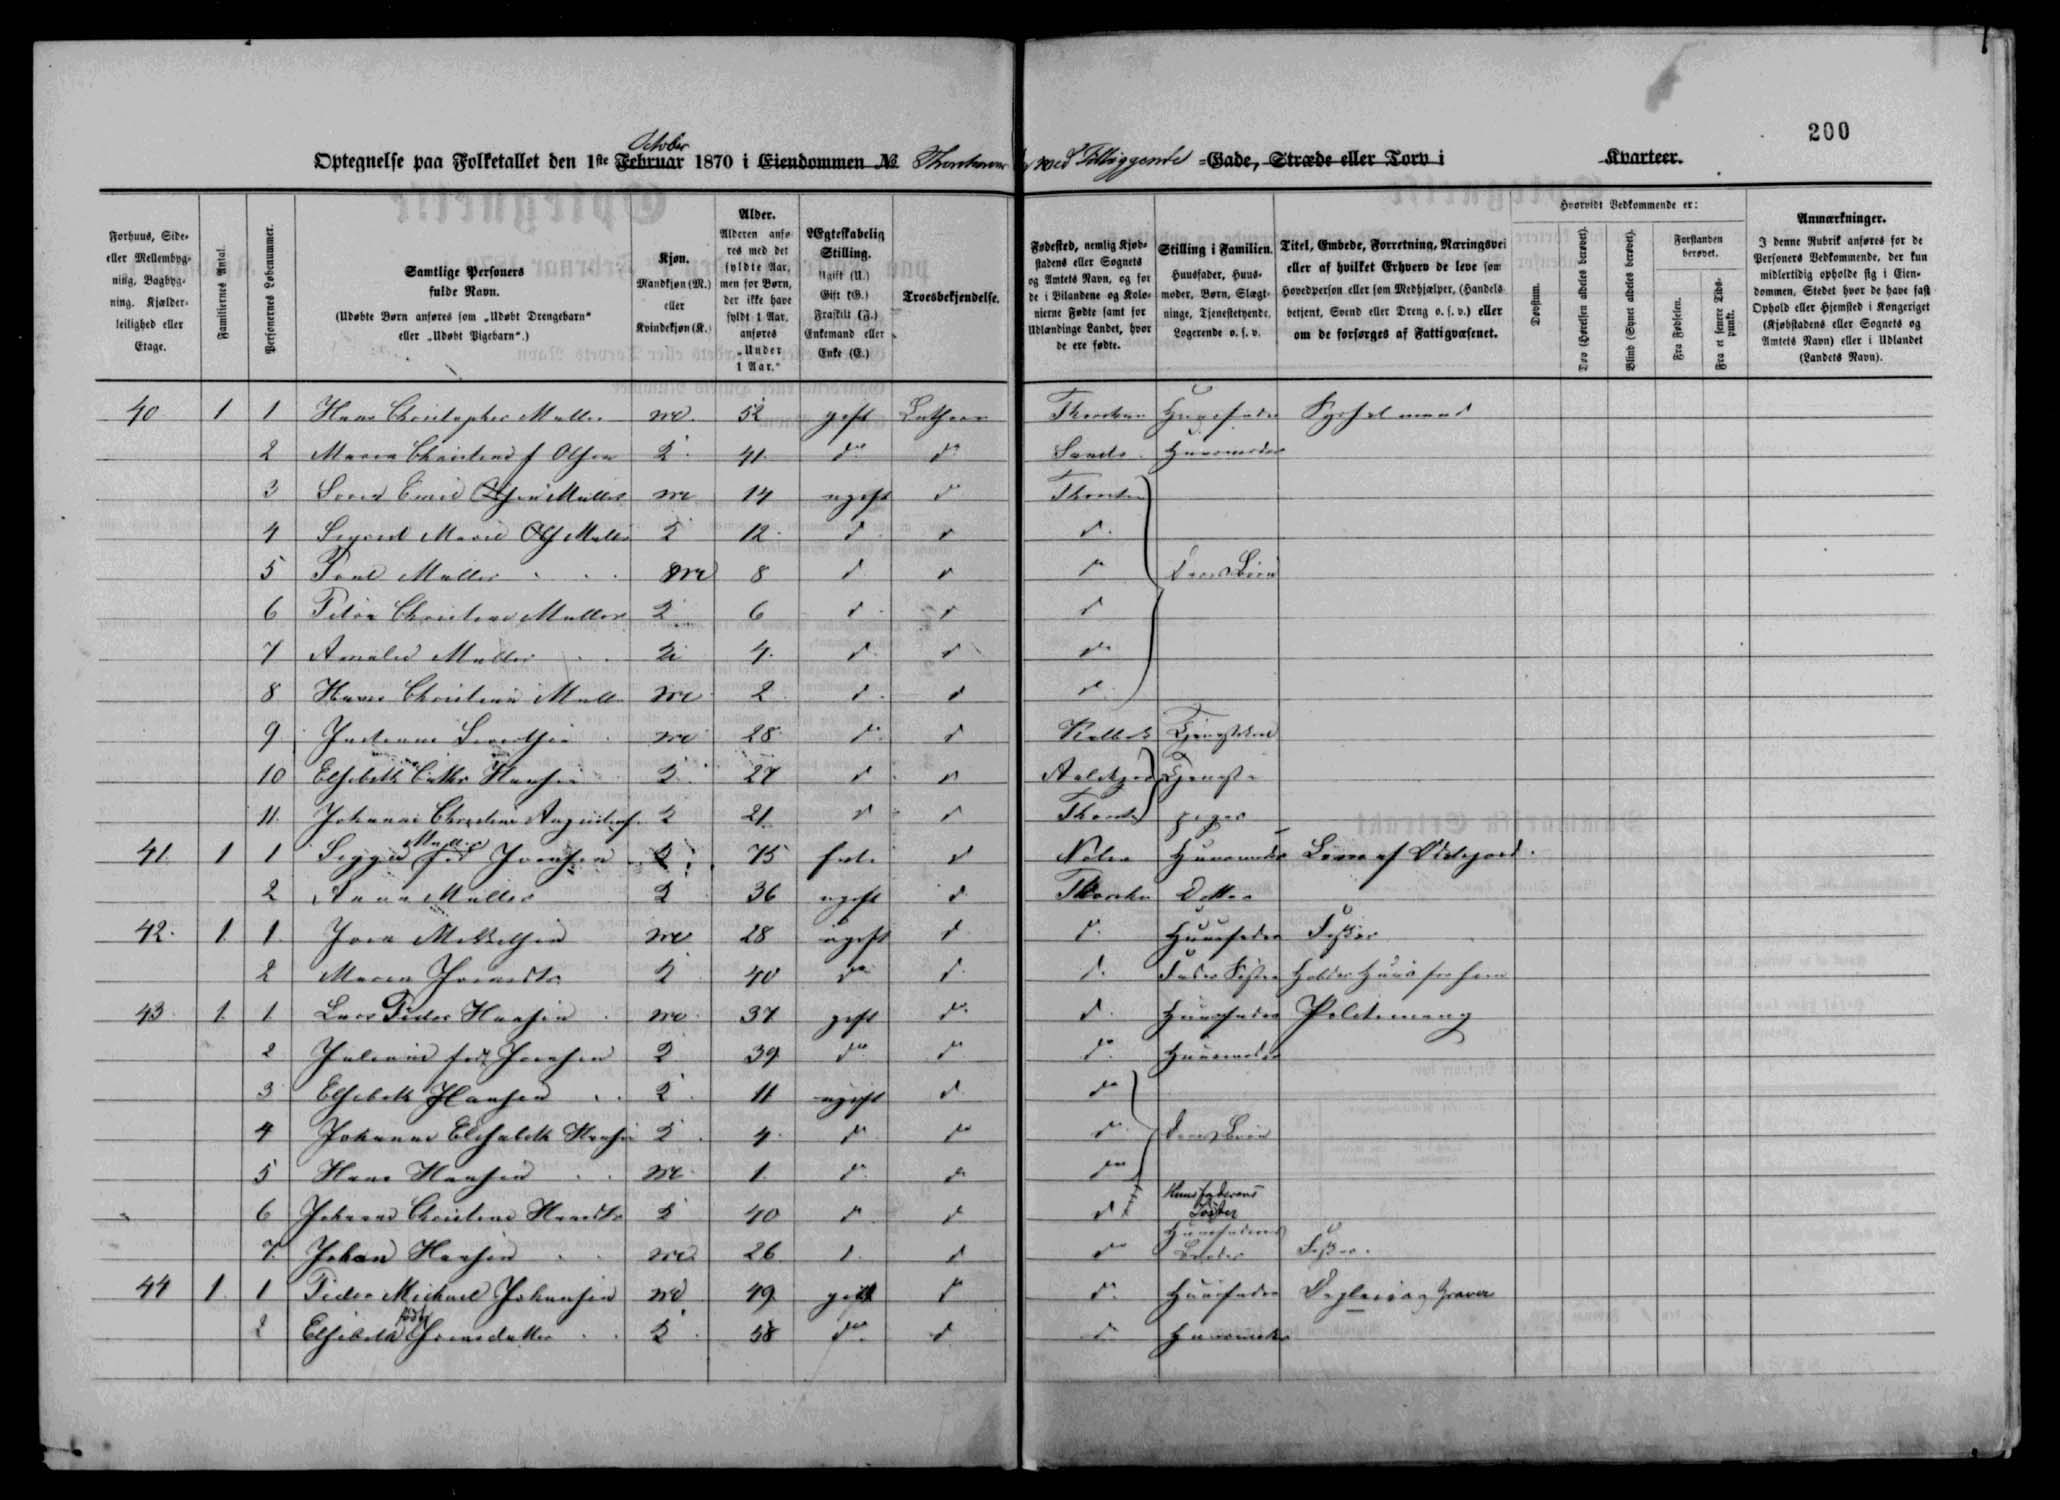 200
October
Optegnelse paa Folketallet den 1ste Februar 1870 i Eiendommen No Thorshavn med Tilliggende -Gade, Stræde eller Torv i Kvarteer.
Forhuus, Side- eller Mellembyg- ning, Bagbyg- ning. Kjælder- leilighed eller Etage.
Familiernes Antal.
Personernes Løbenummer.
Samtlige Personers fulde Navn. (Udøbte Børn anføres som „Udøbt Drengebarn“ eller „Udøbt Pigebarn“.)
Kjøn. Mandkjøn (M.) eller Kvindekjøn (K.)
Alder. Alderen anfø- res med det fyldte Aar, men for Børn, der ikke have fyldt 1 Aar, anføres „Under 1 Aar.“
Ægteskabelig Stilling. Ugift (U.) Gift (G.) Fraskilt (F.) Enkemand eller Enke (E.)
Troesbekjendelse.
Fødested, nemlig Kjøb- stadens eller Sognets og Amtets Navn, og for de i Bilandene og Kolo- nierne Fødte samt for Udlændinge Landet, hvor de ere fødte.
Stilling i Familien. Huusfader, Huus- moder, Børn, Slægt- ninge, Tjenestetyende, Logerende o. s. v.
Titel, Embede, Forretning, Næringsvei eller af hvilket Erhverv de leve som Hovedperson eller som Medhjælper, (Handels- betjent, Svend eller Dreng o. s. v.) eller om de forsørges af Fattigvæsenet.
Hvorvidt Vedkommende er:
Døvstum.
Døv (Hørelsen aldeles berøvet).
Blind (Synet aldeles berøvet).
Forstanden berøvet.
Fra Fødselen.
Fra et senere Tids- punkt.
Anmærkninger. I denne Rubrik anføres for de Personers Vedkommende, der kun midlertidig opholde sig i Eien- dommen, Stedet hvor de have fast Ophold eller Hjemsted i Kongeriget (Kjøbstadens eller Sognets og Amtets Navn) eller i Udlandet (Landets Navn).
40 1 1 Hans Christopher Muller M 52 gift Luthersk Thorshavn Huusfader Sysselmand
2 Maren Christine f Olsen K 41 do do Sands Huusmoder
3 Emil Olsen Muller M 14 ugift do Thorshavn
4 Sigrid Marie Muller K 12 d d d
5 Poul Muller M 8 d d d Deres Børn
6 Christine Muller K 6 d d d
7 Amalie Muller K 4 d d do
8 Hans Christian Muller M 2 d d d
9 M 28 do d Kalbak Tjenestekarl
10 Elsebeth Cathr Hansen K 27 d d Tjeneste
11 Johanne Christine K 21 d d Thorsh piger
41 1 1 Muller fød Joensen K 75 d Nolsø Huusmoder Lever af
2 Anna Muller K 36 ugift d Thorshavn Datter
42 1 1 Joen Mikkelsen M 28 ugift d d Huusfader Fisker
2 Maren Joensdtr K 40 do d d Faders Søster Holder Huus for ham
43 1 1 Lars Peder Hansen M 37 gift do d Huusfader
2 fød Joensen K 39 do do do Huusmoder
3 Elsebeth Hansen K 11 ugift d do
4 Johanne Elisabeth Hansen K 4 do do do Deres Børn
5 Hans Hansen M 1 d do do
6 Christine K 40 d d d Huusfaderens Søster
7 Johan Hansen M 26 d d do Huusfaderens Broder Fisker
44 1 1 Peder Michael Johansen M 49 gift do do Huusfader Daglejer og Graver
2 Elsebeth født Joensdatter K 58 do d d Huusmoder